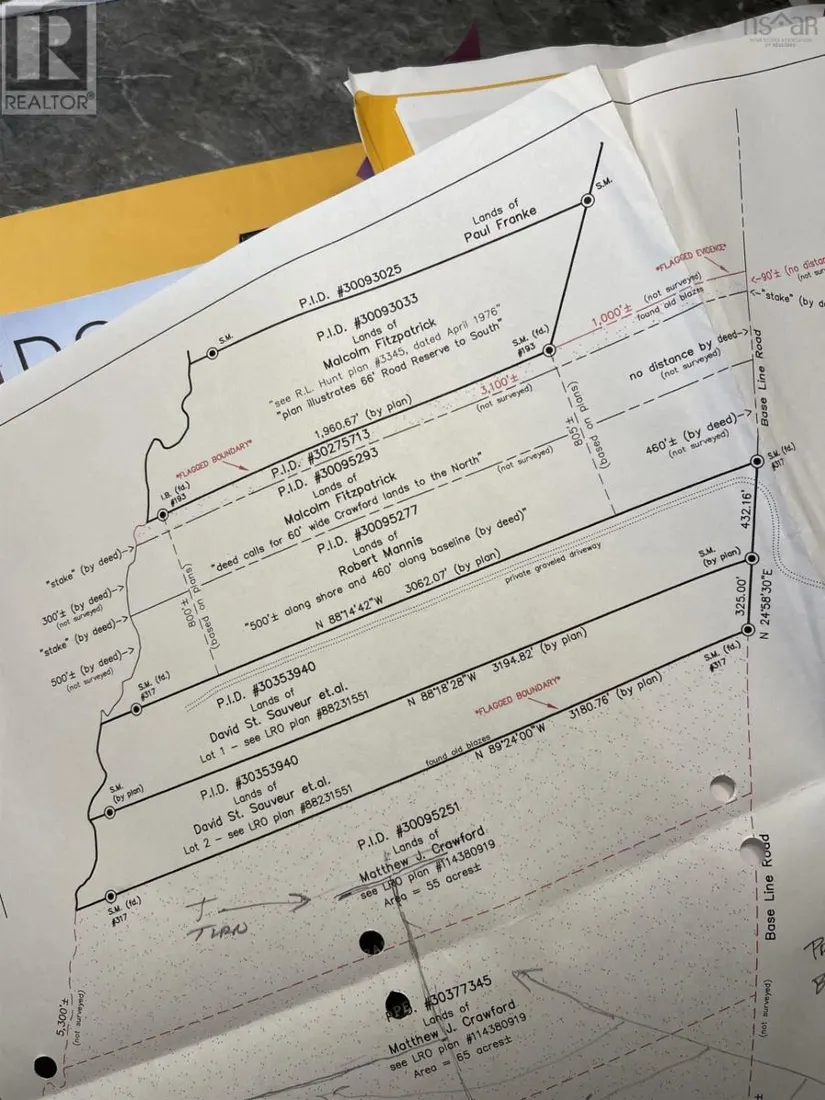 REALTOR®
nsaar
Lands of
Paul Franke
S.M.
P.I.D. #30093025
S.M.
P.I.D. #30093033
Lands of
Malcolm Fitzpatrick
"see R.L. Hunt plan #3345, dated April 1976"
"plan illustrates 66' Road Reserve to South"
S.M. (fd.)
#193
1,000'±
(not surveyed)
found old blazes
*FLAGGED EVIDENCE*
<-90'± (no dista
(not sur
<-"stake" (by d
1,960.67' (by plan)
3,100'±
(not surveyed)
*FLAGGED BOUNDARY*
I.B. (fd.)
#193
P.I.D. #30275713
P.I.D. #30095293
Lands of
Malcolm Fitzpatrick
"deed calls for 60' wide Crawford lands to the North"
(not surveyed)
805'±
(based on plans)
no distance by deed->
(not surveyed)
Base Line Road
460'± (by deed)->
(not surveyed)
S.M. (fd.)
#317
"stake" (by deed)->
300'± (by deed)->
(not surveyed)
"stake" (by deed)->
500'± (by deed)->
(not surveyed)
800'±
(based on plans)
P.I.D. #30095277
Lands of
Robert Mannis
"500'± along shore and 460' along baseline (by deed)"
N 88°14'42"W 3062.07' (by plan)
private graveled driveway
432.16'
S.M.
(by plan)
325.00'
N 24°58'30"E
S.M. (fd.)
#317
S.M. (fd.)
#317
P.I.D. #30353940
Lands of
David St. Sauveur et.al.
Lot 1 - see LRO plan #88231551
N 88°18'28"W 3194.82' (by plan)
*FLAGGED BOUNDARY*
S.M.
(by plan)
P.I.D. #30353940
Lands of
David St. Sauveur et.al.
Lot 2 - see LRO plan #88231551
found old blazes
N 89°24'00"W 3180.76' (by plan)
S.M. (fd.)
#317
P.I.D. #30095251
Lands of
Matthew J. Crawford
see LRO plan #114380919
Area = 55 acres±
Base Line Road
5,300'±
(not surveyed)
#30377345
Lands of
Matthew J. Crawford
see LRO plan #114380919
Area = 65 acres±
(not surveyed)